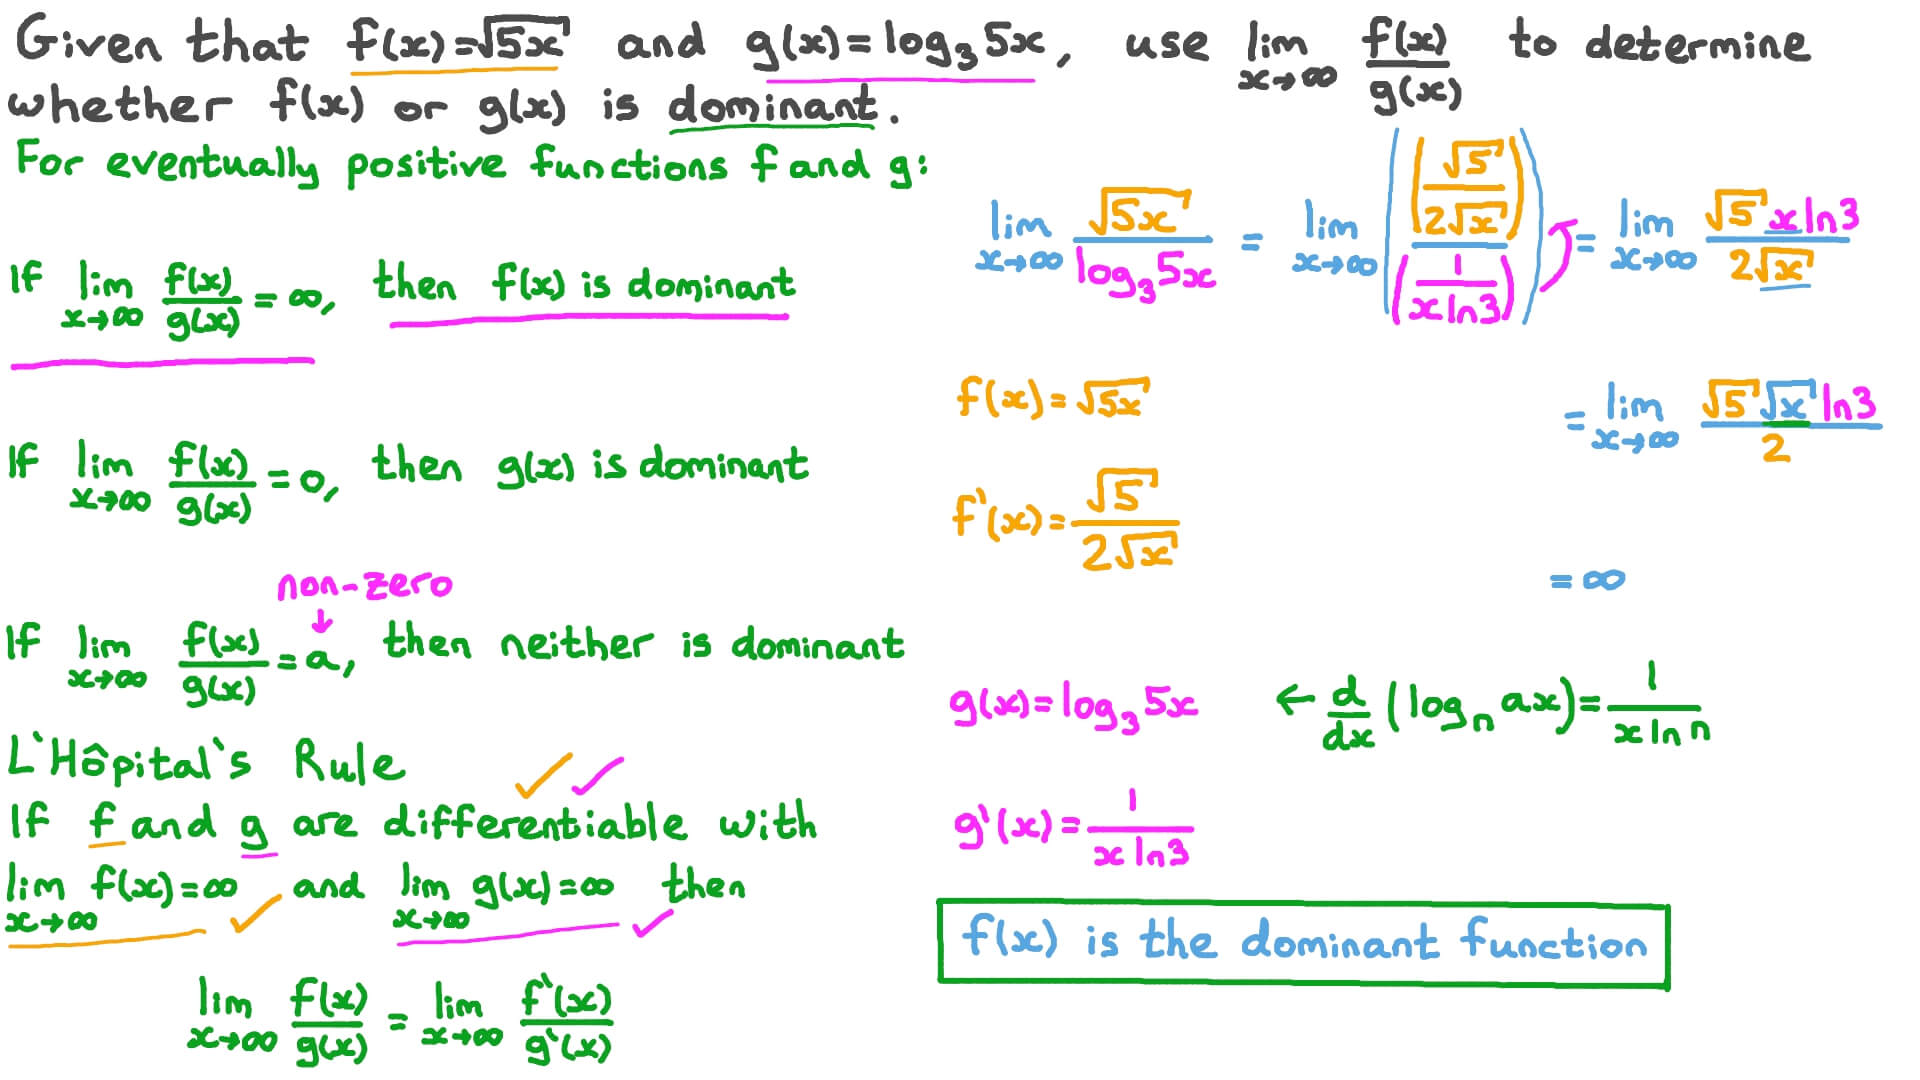 Given that f(x)=√5x and g(x)=log₃5x, use lim x→∞ f(x)/g(x) to determine
whether f(x) or g(x) is dominant.
For eventually positive functions f and g:
If lim x→∞ f(x)/g(x) = ∞, then f(x) is dominant
If lim x→∞ f(x)/g(x) = 0, then g(x) is dominant
non-zero
↓
If lim x→∞ f(x)/g(x) = a, then neither is dominant
L'Hôpital's Rule
If f and g are differentiable with
lim x→∞ f(x)=∞ and lim x→∞ g(x)=∞ then
lim x→∞ f(x)/g(x) = lim x→∞ f'(x)/g'(x)
lim x→∞ √5x/log₃5x = lim x→∞ ((√5/2√x)/(1/x ln3)) = lim x→∞ √5 x ln3/2√x
= lim x→∞ √5 √x ln3/2
= ∞
f(x)=√5x
f'(x)=√5/2√x
g(x)=log₃5x ← d/dx (logₙ ax) = 1/x ln n
g'(x)=1/x ln3
f(x) is the dominant function